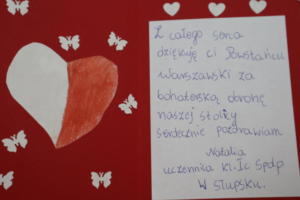 Z całego serca
dziękuję ci Powstańcu
Warszawski za
bohaterską obronę
naszej stolicy
serdecznie pozdrawiam
Natalia
uczennica kl. Ic Spdp
W Słupsku.